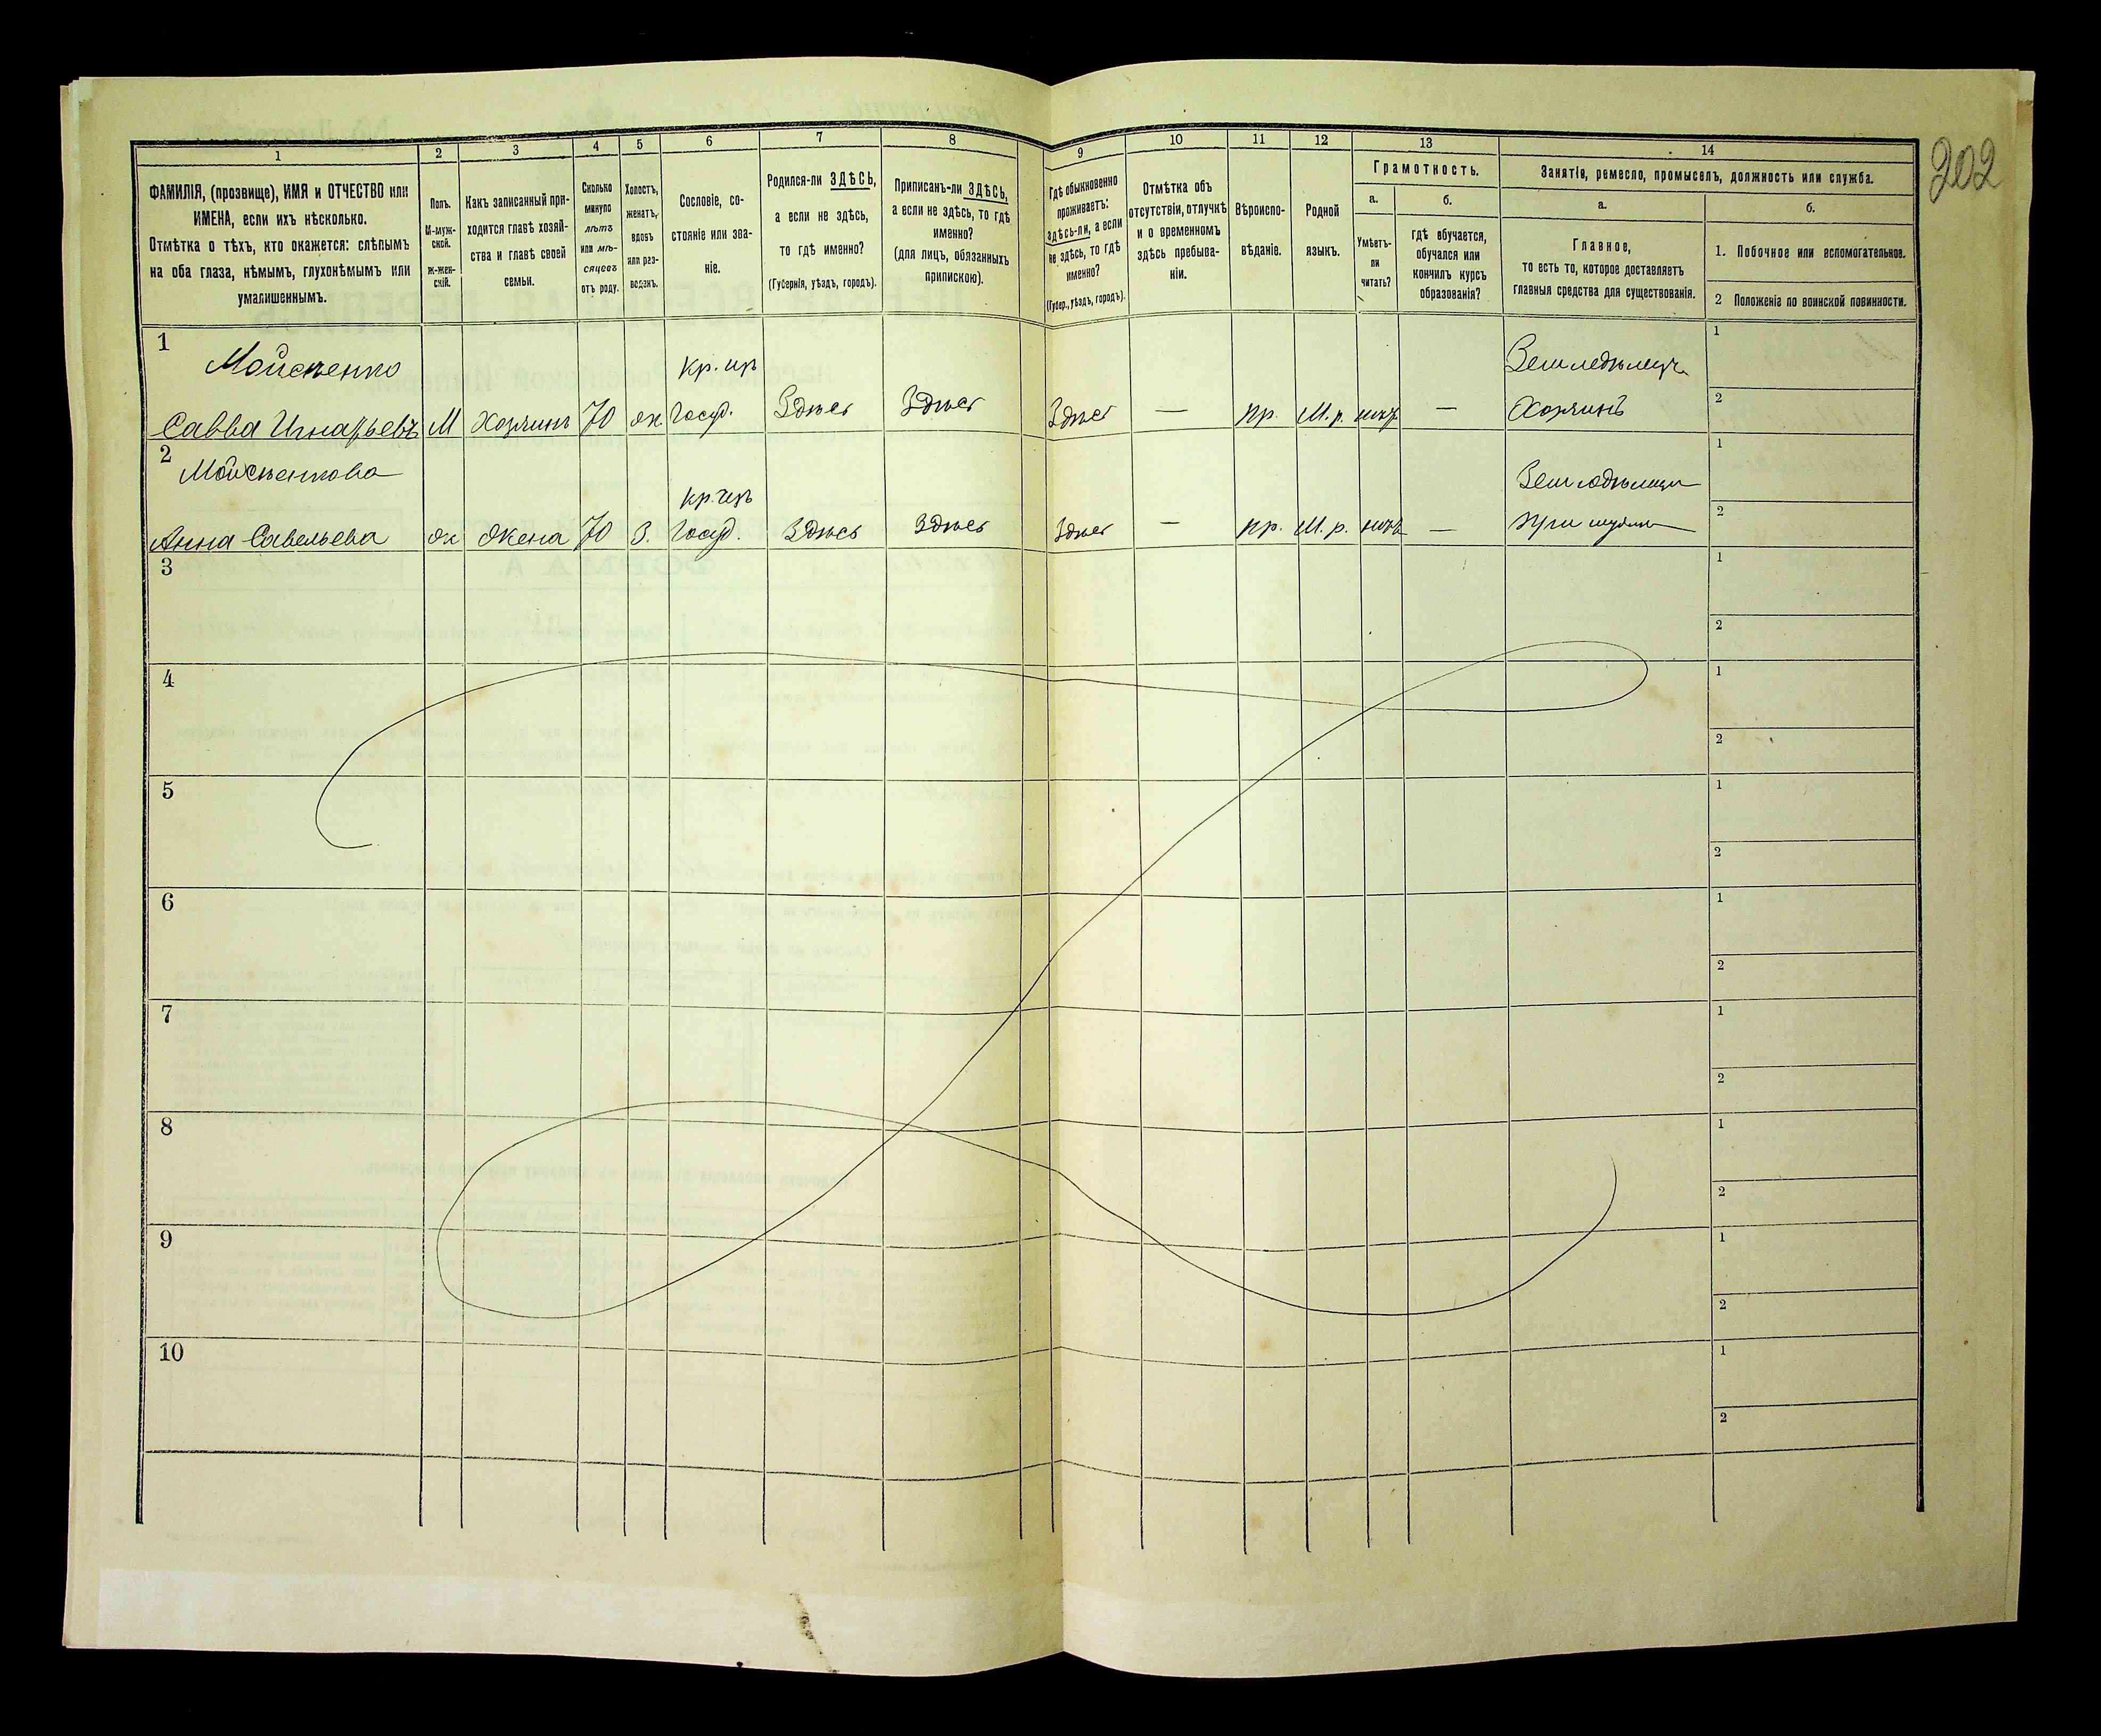 202
1
2
3
4
5
6
7
8
9
10
11
12
13
14
ФАМИЛІЯ, (прозвище), ИМЯ и ОТЧЕСТВО или
ИМЕНА, если ихъ нѣсколько.
Отмѣтка о тѣхъ, кто окажется: слѣпымъ
на оба глаза, нѣмымъ, глухонѣмымъ или
умалишеннымъ.
Полъ.
М-муж-
ской.
Ж-жен-
скій.
Какъ записанный при-
ходится главѣ хозяй-
ства и главѣ своей
семьи.
Сколько
минуло
лѣтъ
или мѣ-
сяцевъ
отъ роду.
Холостъ,
женатъ,
вдовъ
или раз-
веденъ.
Сословіе, со-
стояніе или зва-
ніе.
Родился-ли ЗДѢСЬ,
а если не здѣсь,
то гдѣ именно?
(Губернія, уѣздъ, городъ).
Приписанъ-ли ЗДѢСЬ,
а если не здѣсь, то гдѣ
именно?
(для лицъ, обязанныхъ
припискою).
Гдѣ обыкновенно
проживаетъ:
здѣсь-ли, а если
не здѣсь, то гдѣ
именно?
(Губер., уѣздъ, городъ).
Отмѣтка объ
отсутствіи, отлучкѣ
и о временномъ
здѣсь пребыва-
ніи.
Вѣроиспо-
вѣданіе.
Родной
языкъ.
Грамотность.
а.
Умѣетъ-
ли
читать?
б.
гдѣ обучается,
обучался или
кончилъ курсъ
образованія?
Занятіе, ремесло, промыселъ, должность или служба.
а.
Главное,
то есть то, которое доставляетъ
главныя средства для существованія.
б.
1. Побочное или вспомогательное.
2 Положеніе по воинской повинности.
1
Мойсѣенко
Савва Игнатьевъ
М
Хозяинъ
70
ж
кр. изъ
Госуд.
Здѣсь
Здѣсь
Здѣсь
—
пр.
М. р.
нѣтъ
—
Земледѣлецъ
Хозяинъ
1
2
2
Мойсѣенкова
Анна Савельева
ж
Жена
70
З.
кр. изъ
Госуд.
Здѣсь
Здѣсь
Здѣсь
—
пр.
М. р.
нѣтъ
—
При мужѣ
1
2
3
1
2
4
1
2
5
1
2
6
1
2
7
1
2
8
1
2
9
1
2
10
1
2